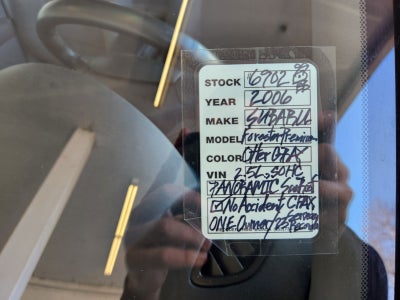 STOCK 6902
YEAR 2006
MAKE SUBARU
MODEL Forester Premium
COLOR Otter GRAY
VIN 2.5L, SOHC
PANORAMIC Sunroof
No Accident CFAX
ONE Owner/ 25 Service Records